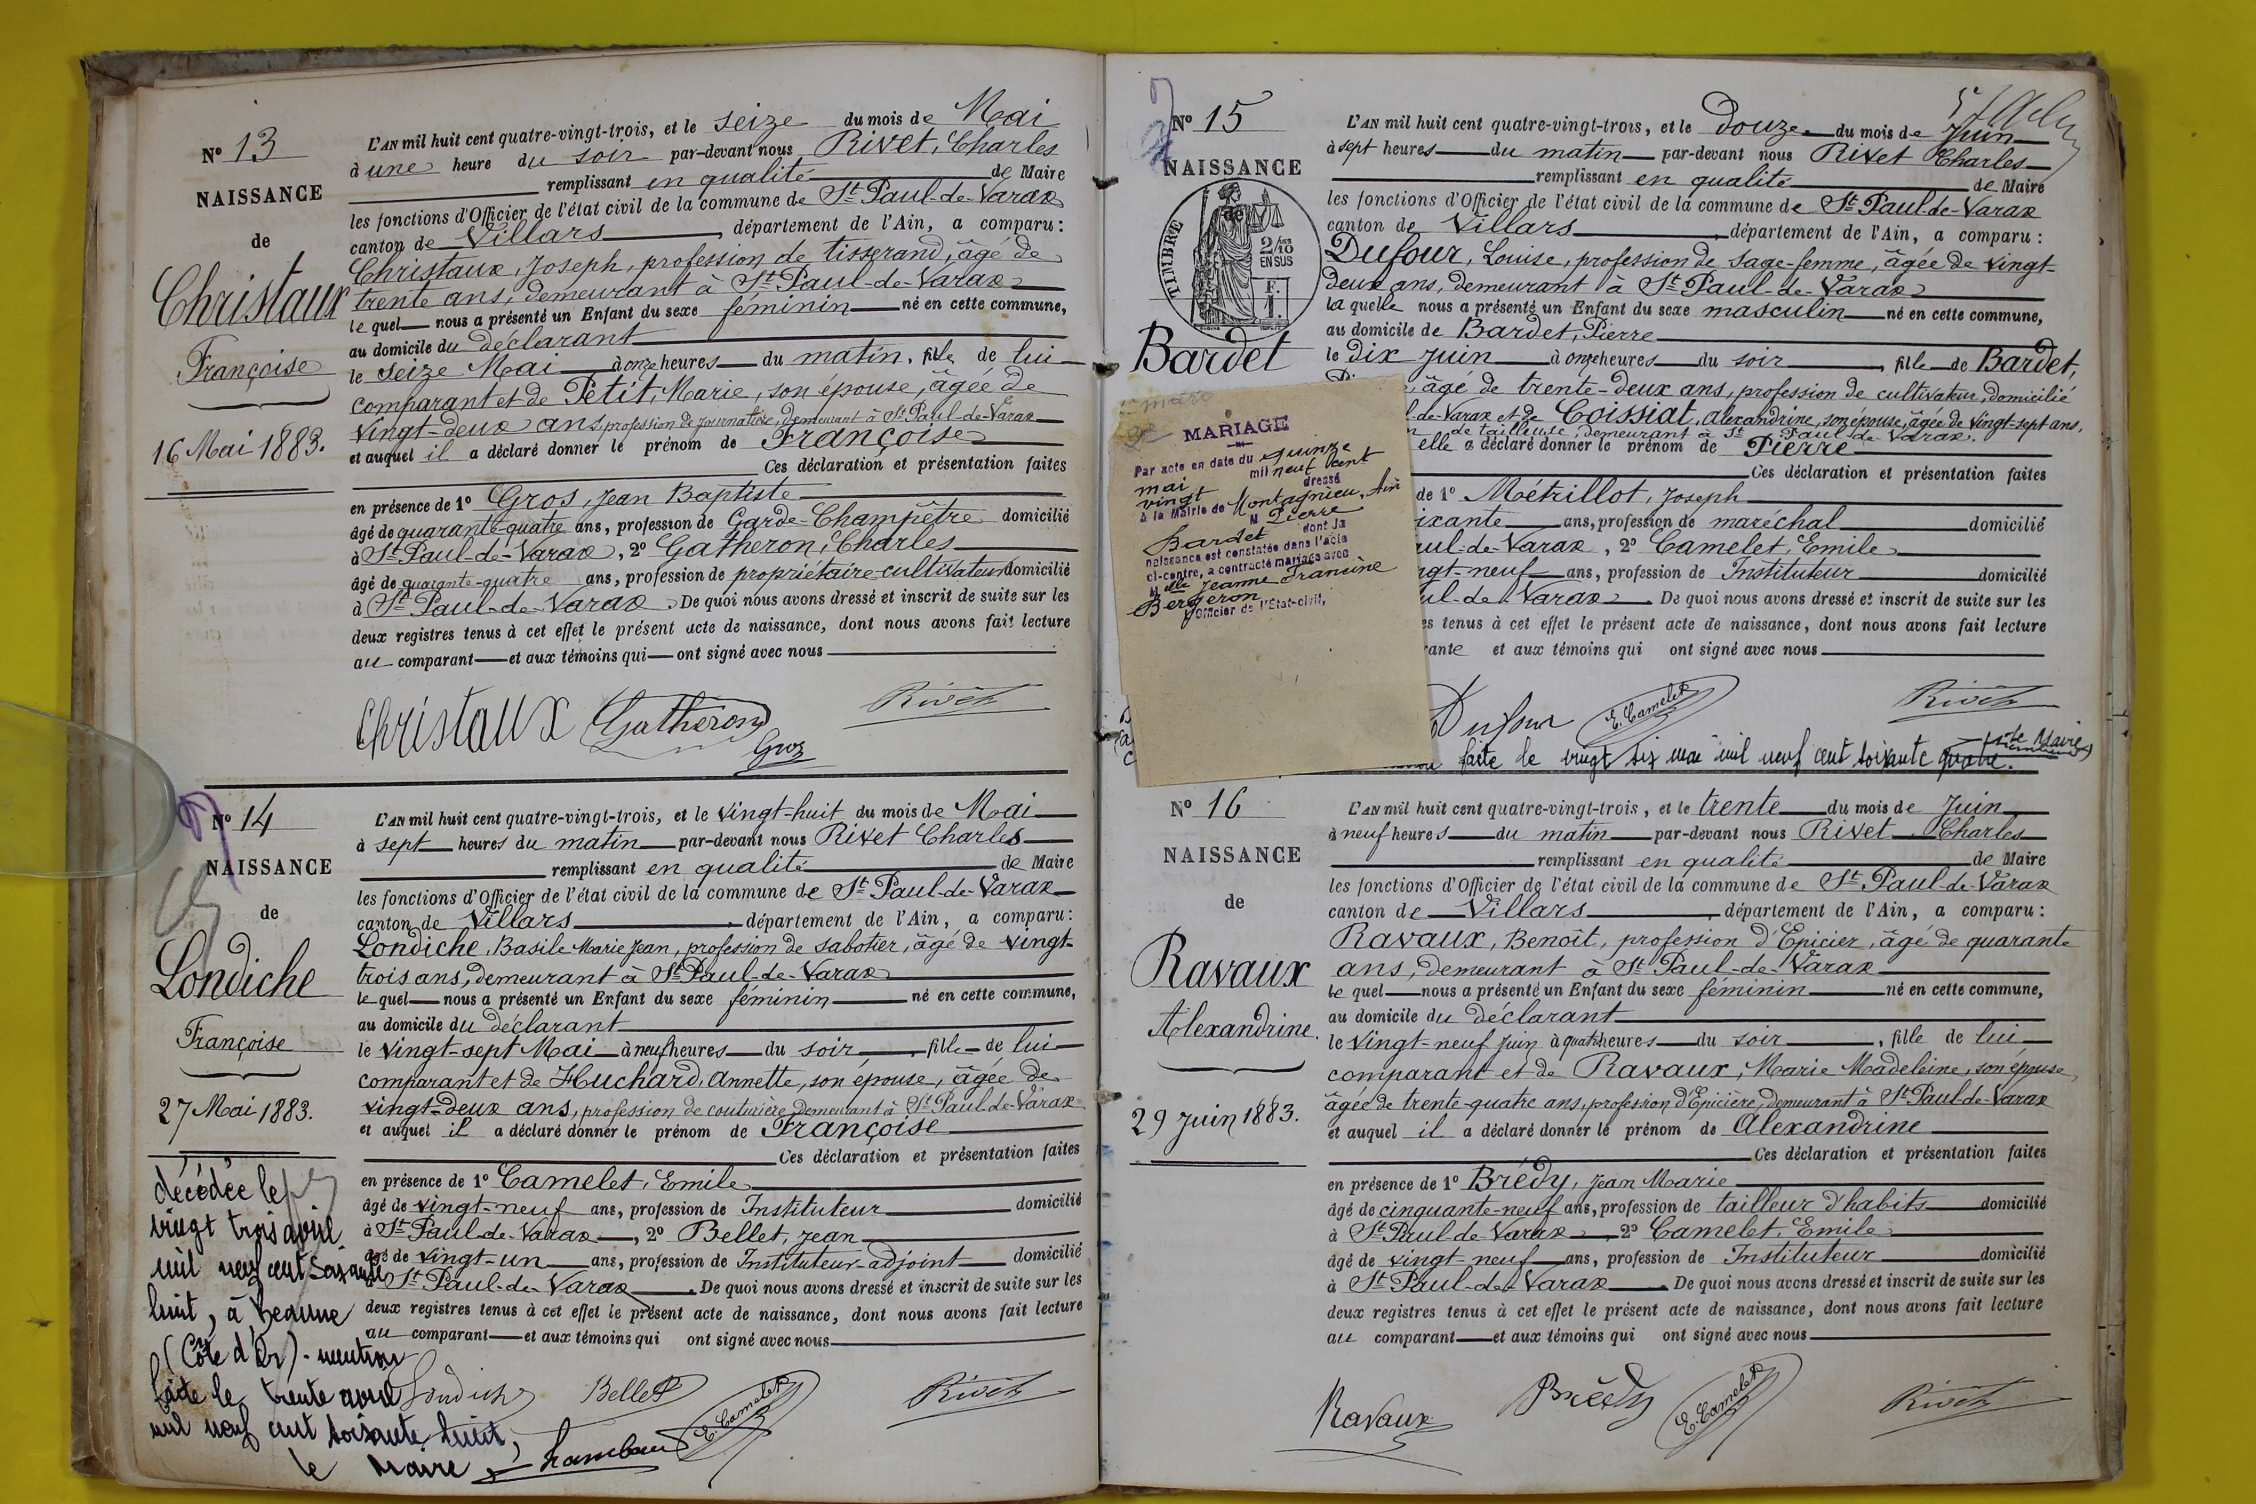 N° 13
NAISSANCE
de
Christaux
Françoise
16 Mai 1883.
L'AN mil huit cent quatre-vingt-trois, et le seize du mois de Mai
à une heure du soir par-devant nous Rivet, Charles
remplissant en qualité de Maire
les fonctions d'Officier de l'état civil de la commune de St Paul-de-Varax
canton de Villars, département de l'Ain, a comparu :
Christaux, Joseph, profession de tisserand, âgé de
trente ans, demeurant à St Paul-de-Varax
le quel nous a présenté un Enfant du sexe féminin né en cette commune,
au domicile du déclarant
le seize Mai à onze heures du matin, fille de lui
comparant et de Petit, Marie, son épouse, âgée de
vingt-deux ans, profession de journalière, demeurant à St Paul-de-Varax
et auquel il a déclaré donner le prénom de Françoise
Ces déclaration et présentation faites
en présence de 1° Gros, Jean Baptiste
âgé de quarante-quatre ans, profession de Garde-Champêtre domicilié
à St Paul-de-Varax, 2° Gatheron, Charles
âgé de quarante-quatre ans, profession de propriétaire-cultivateur domicilié
à St Paul-de-Varax. De quoi nous avons dressé et inscrit de suite sur les
deux registres tenus à cet effet le présent acte de naissance, dont nous avons fait lecture
au comparant et aux témoins qui ont signé avec nous
Christaux Gatheron Rivet
Gros
N° 14
NAISSANCE
de
Londiche
Françoise
27 Mai 1883.
décédée le
vingt trois avril
mil neuf cent soixante
huit, à Beaune
(Côte d'Or) - mention
faite le trente avril
mil neuf cent soixante huit,
le Maire
L'AN mil huit cent quatre-vingt-trois, et le vingt-huit du mois de Mai
à sept heures du matin par-devant nous Rivet Charles
remplissant en qualité de Maire
les fonctions d'Officier de l'état civil de la commune de St Paul-de-Varax
canton de Villars, département de l'Ain, a comparu :
Londiche, Basile Marie Jean, profession de sabotier, âgé de vingt-
trois ans, demeurant à St Paul-de-Varax
le quel nous a présenté un Enfant du sexe féminin né en cette commune,
au domicile du déclarant
le vingt-sept Mai à neuf heures du soir, fille de lui
comparant et de Huchard, Annette, son épouse, âgée de
vingt-deux ans, profession de couturière demeurant à St Paul-de-Varax
et auquel il a déclaré donner le prénom de Françoise
Ces déclaration et présentation faites
en présence de 1° Camelet, Emile
âgé de vingt-neuf ans, profession de Instituteur domicilié
à St Paul-de-Varax, 2° Bellet, Jean
âgé de vingt-un ans, profession de Instituteur-adjoint domicilié
à St Paul-de-Varax. De quoi nous avons dressé et inscrit de suite sur les
deux registres tenus à cet effet le présent acte de naissance, dont nous avons fait lecture
au comparant et aux témoins qui ont signé avec nous
Londiche Bellet E. Camelet Rivet
N° 15
NAISSANCE
de
TIMBRE
2/10 EN SUS
F. 1.
Bardet
L'AN mil huit cent quatre-vingt-trois, et le douze du mois de Juin
à sept heures du matin par-devant nous Rivet Charles
remplissant en qualité de Maire
les fonctions d'Officier de l'état civil de la commune de St Paul-de-Varax
canton de Villars, département de l'Ain, a comparu :
Dufour, Louise, profession de sage-femme, âgée de vingt-
deux ans, demeurant à St Paul-de-Varax
la quelle nous a présenté un Enfant du sexe masculin né en cette commune,
au domicile de Bardet, Pierre
le dix Juin à onze heures du soir, fille de Bardet,
âgé de trente-deux ans, profession de cultivateur, domicilié
l-de-Varax et de Coissiat, Alexandrine, son épouse, âgée de vingt-sept ans,
n de tailleuse, demeurant à St Paul-de-Varax.
elle a déclaré donner le prénom de Pierre
Ces déclaration et présentation faites
de 1° Métrillot, Joseph
ixante ans, profession de maréchal domicilié
aul-de-Varax, 2° Camelet, Emile
ngt-neuf ans, profession de Instituteur domicilié
ul-de-Varax. De quoi nous avons dressé et inscrit de suite sur les
es tenus à cet effet le présent acte de naissance, dont nous avons fait lecture
rante et aux témoins qui ont signé avec nous
Dufour E. Camelet Rivet
faite le vingt six mai mil neuf cent soixante quatre. le Maire
MARIAGE
Par acte en date du quinze
mai mil neuf cent
vingt dressé
à la Mairie de Montagnieu, Ain
M Pierre
Bardet dont la
naissance est constatée dans l'acte
ci-contre, a contracté mariage avec
Mlle Jeanne Francine
Bergeron
l'Officier de l'Etat-civil,
N° 16
NAISSANCE
de
Ravaux
Alexandrine.
29 Juin 1883.
L'AN mil huit cent quatre-vingt-trois, et le trente du mois de Juin
à neuf heures du matin par-devant nous Rivet Charles
remplissant en qualité de Maire
les fonctions d'Officier de l'état civil de la commune de St Paul-de-Varax
canton de Villars, département de l'Ain, a comparu :
Ravaux, Benoît, profession d'Epicier, âgé de quarante
ans, demeurant à St Paul-de-Varax
le quel nous a présenté un Enfant du sexe féminin né en cette commune,
au domicile du déclarant
le vingt-neuf Juin à quatre heures du soir, fille de lui
comparant et de Ravaux, Marie Madeleine, son épouse,
âgée de trente-quatre ans, profession d'Epicière, demeurant à St Paul-de-Varax
et auquel il a déclaré donner le prénom de Alexandrine
Ces déclaration et présentation faites
en présence de 1° Brédy, Jean Marie
âgé de cinquante-neuf ans, profession de tailleur d'habits domicilié
à St Paul-de-Varax, 2° Camelet, Emile
âgé de vingt-neuf ans, profession de Instituteur domicilié
à St Paul-de-Varax. De quoi nous avons dressé et inscrit de suite sur les
deux registres tenus à cet effet le présent acte de naissance, dont nous avons fait lecture
au comparant et aux témoins qui ont signé avec nous
Ravaux Brédy E. Camelet Rivet